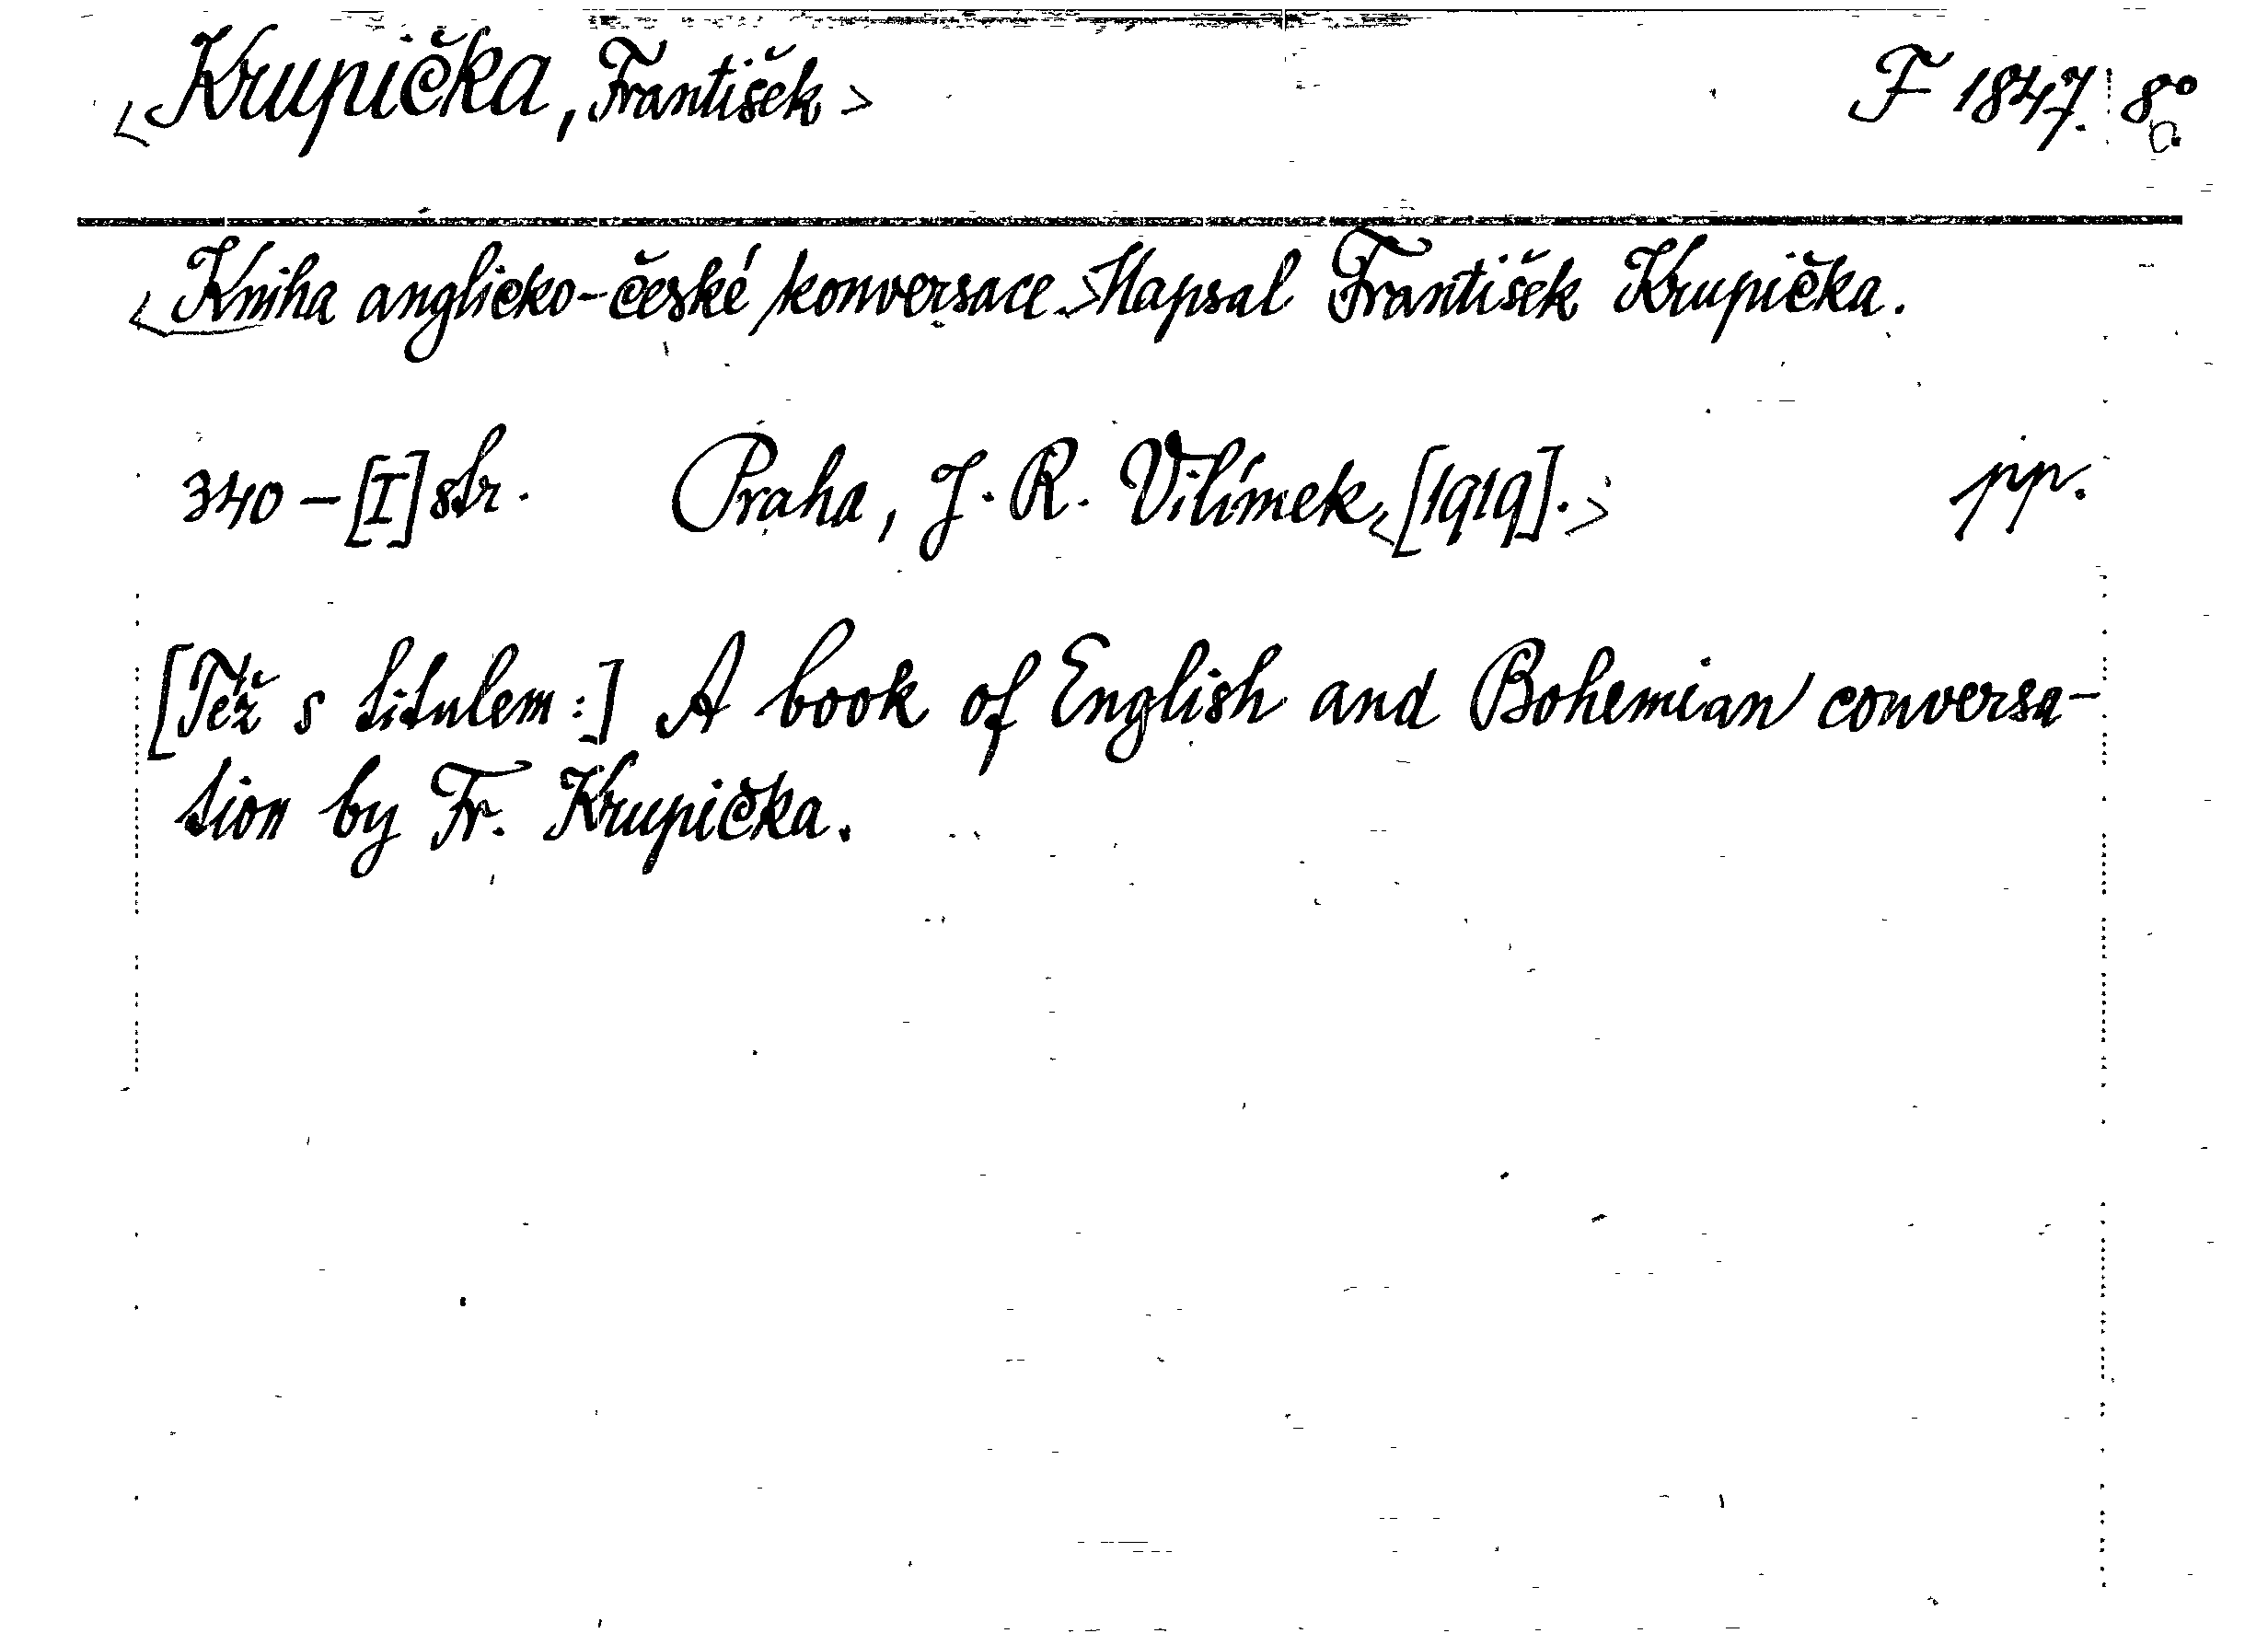 <Krupička, František> F 1847. 8°
<Kniha anglicko-české konversace.> Napsal František Krupička.
340 – [I] str. Praha, J. R. Vilímek, <[1919].> pp.
[Též s titulem:] A book of English and Bohemian conversa-
tion by Fr. Krupička.